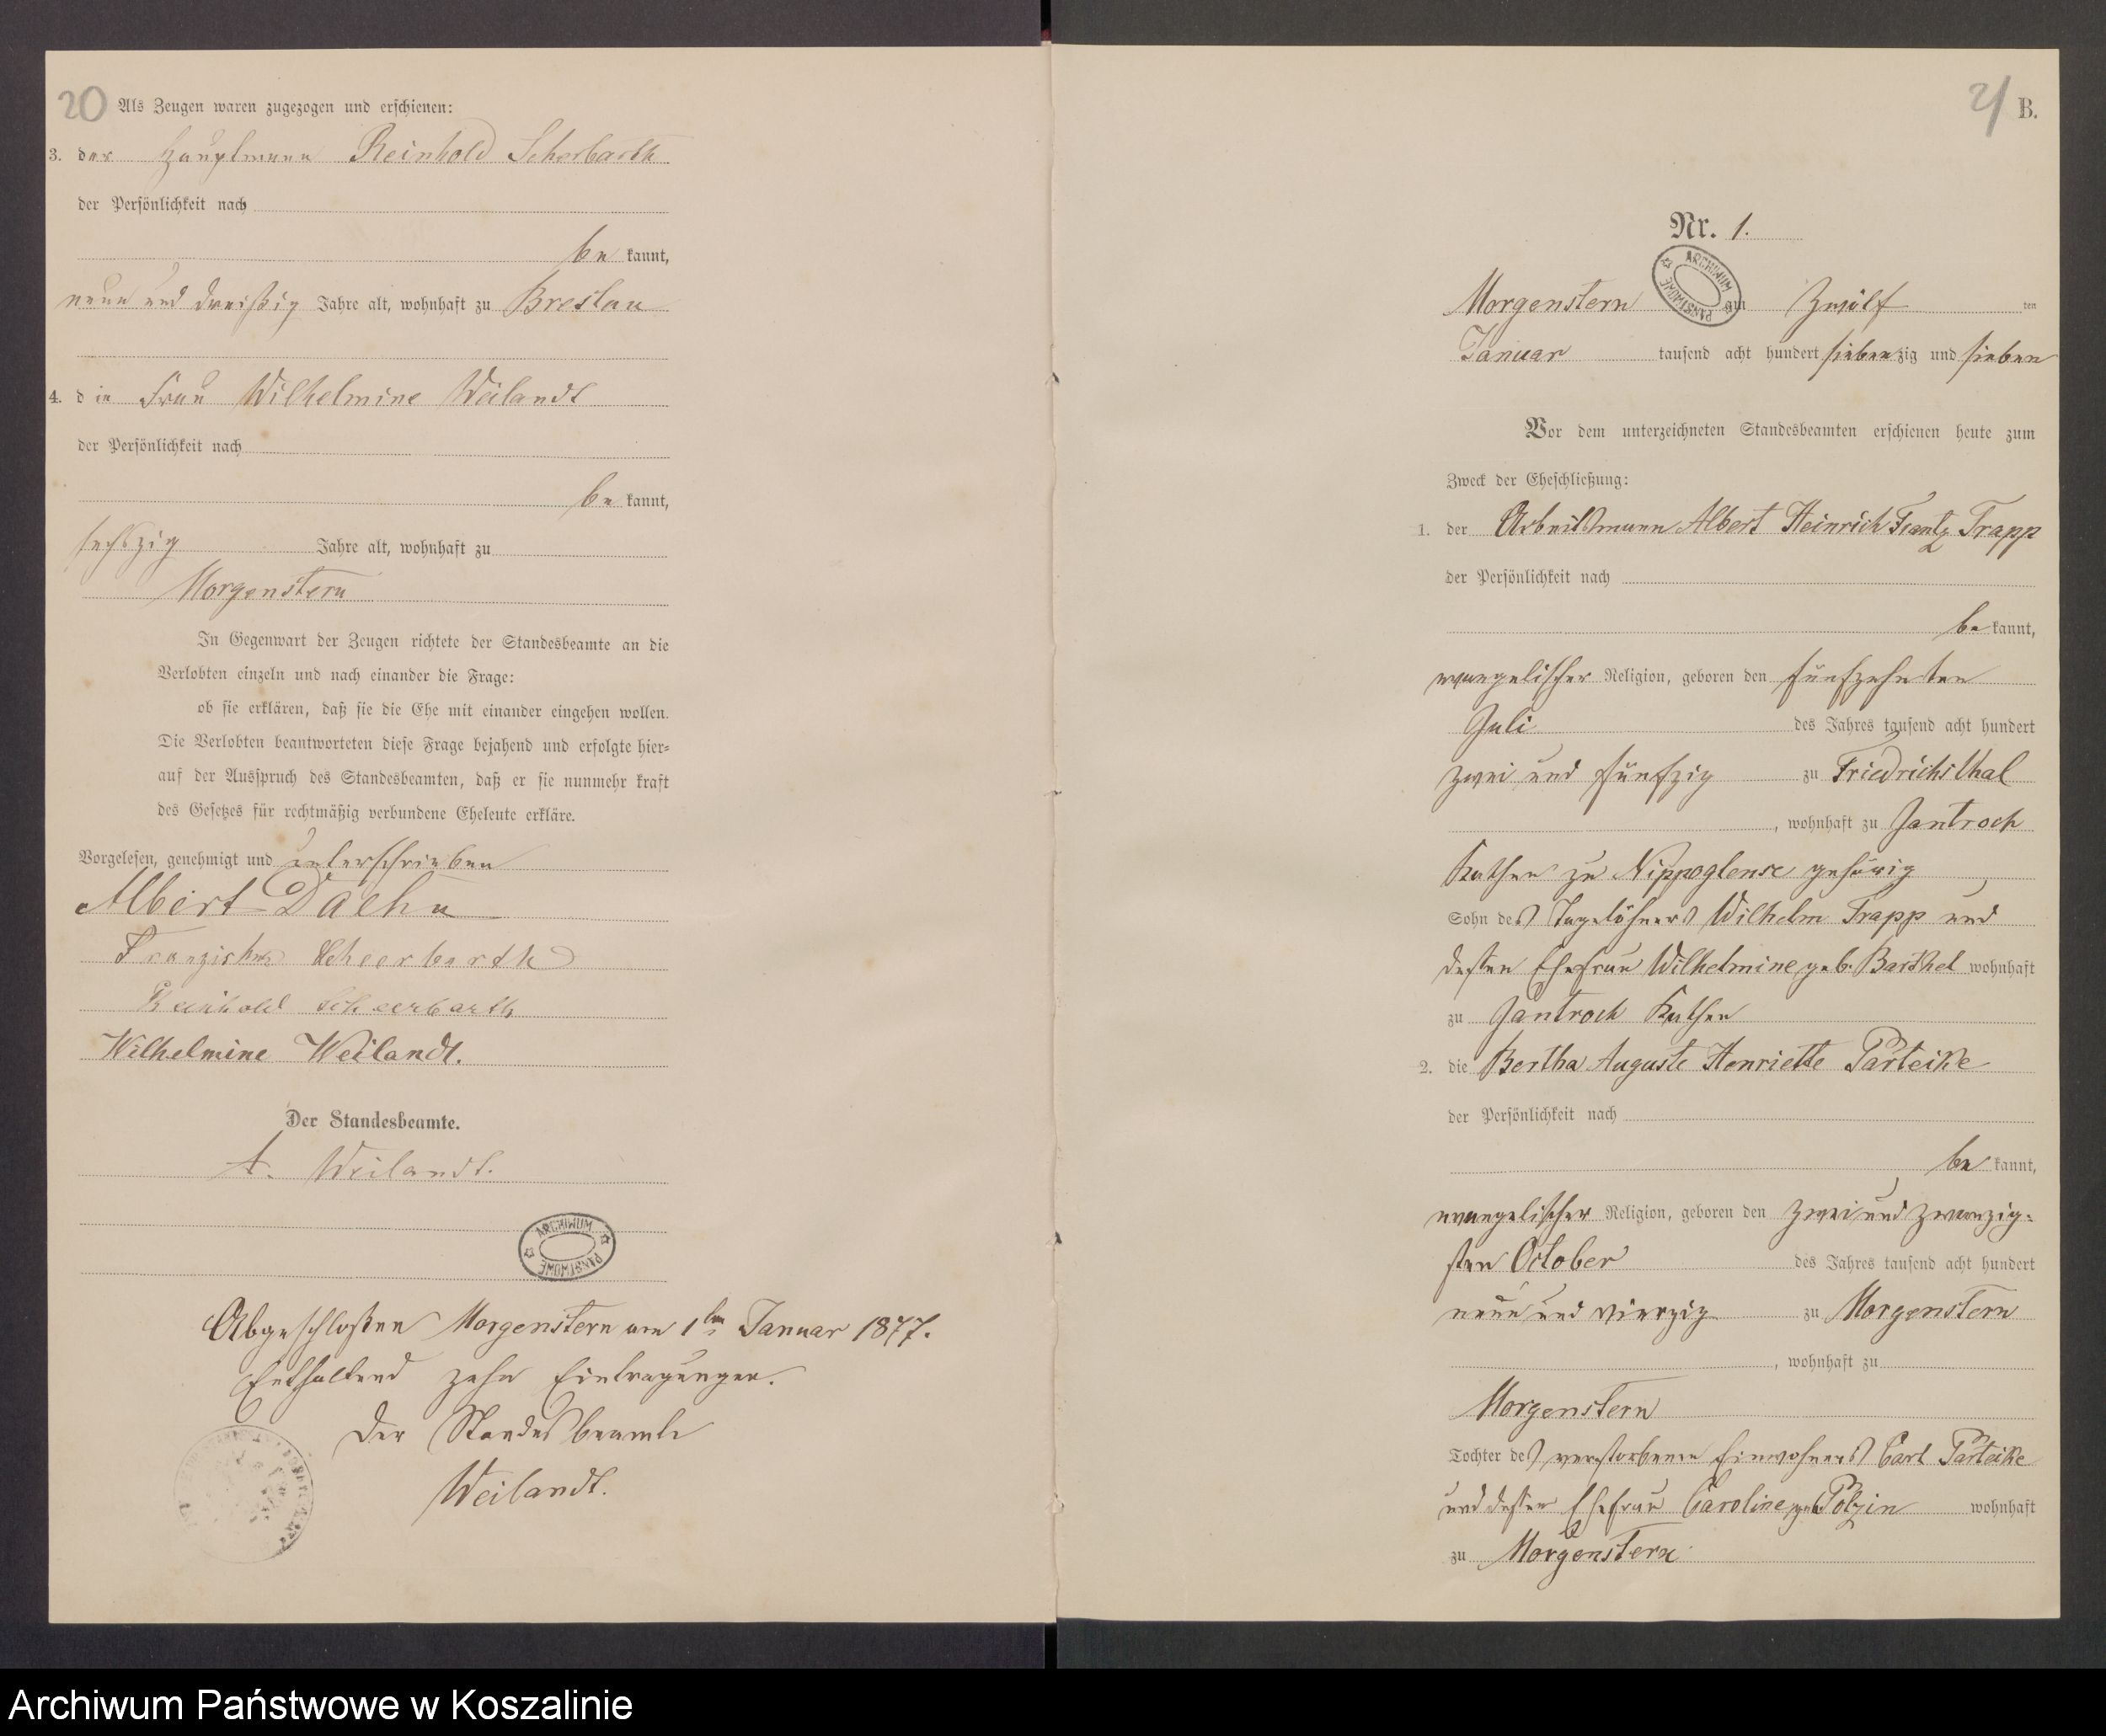 20 Als Zeugen waren zugezogen und erschienen:
3. der Hauptmann Reinhold Scherbarth
der Persönlichkeit nach
be kannt,
neun und dreißig Jahre alt, wohnhaft zu Breslau
4. die Frau Wilhelmine Weilandt
der Persönlichkeit nach
be kannt,
sechszig Jahre alt, wohnhaft zu
Morgenstern
In Gegenwart der Zeugen richtete der Standesbeamte an die
Verlobten einzeln und nach einander die Frage:
ob sie erklären, daß sie die Ehe mit einander eingehen wollen.
Die Verlobten beantworteten diese Frage bejahend und erfolgte hier-
auf der Ausspruch des Standesbeamten, daß er sie nunmehr kraft
des Gesetzes für rechtmäßig verbundene Eheleute erkläre.
Vorgelesen, genehmigt und unterschrieben
Albert Daehn
Franziska Scheerbarth
Reinhold Scheerbarth
Wilhelmine Weilandt.
Der Standesbeamte.
A. Weilandt.
ARCHIWUM PAŃSTWOWE
Abgeschloßen Morgenstern am 1ten Januar 1877.
Enthaltend zehn Eintragungen.
Der Standesbeamte
Weilandt.
21 B.
Nr. 1.
ARCHIWUM PAŃSTWOWE
Morgenstern am Zwölf ten
Januar tausend acht hundert siebenzig und sieben
Vor dem unterzeichneten Standesbeamten erschienen heute zum
Zweck der Eheschließung:
1. der Arbeitsmann Albert Heinrich Frantz Trapp
der Persönlichkeit nach
be kannt,
evangelischer Religion, geboren den fünfzehnten
Juli des Jahres tausend acht hundert
zwei und fünfzig zu Friedrichsthal
, wohnhaft zu Jantroch
Kathen zu Nippoglense gehörig,
Sohn des Tagelöhners Wilhelm Trapp und
dessen Ehefrau Wilhelmine geb. Barthel wohnhaft
zu Jantroch Kathen
2. die Bertha Auguste Henriette Parteike
der Persönlichkeit nach
be kannt,
evangelischer Religion, geboren den zwei und zwanzig-
sten October des Jahres tausend acht hundert
neun und vierzig zu Morgenstern
, wohnhaft zu
Morgenstern
Tochter des verstorbenen Einwohners Carl Parteike
und dessen Ehefrau Caroline geb. Polzin wohnhaft
zu Morgenstern
Archiwum Państwowe w Koszalinie